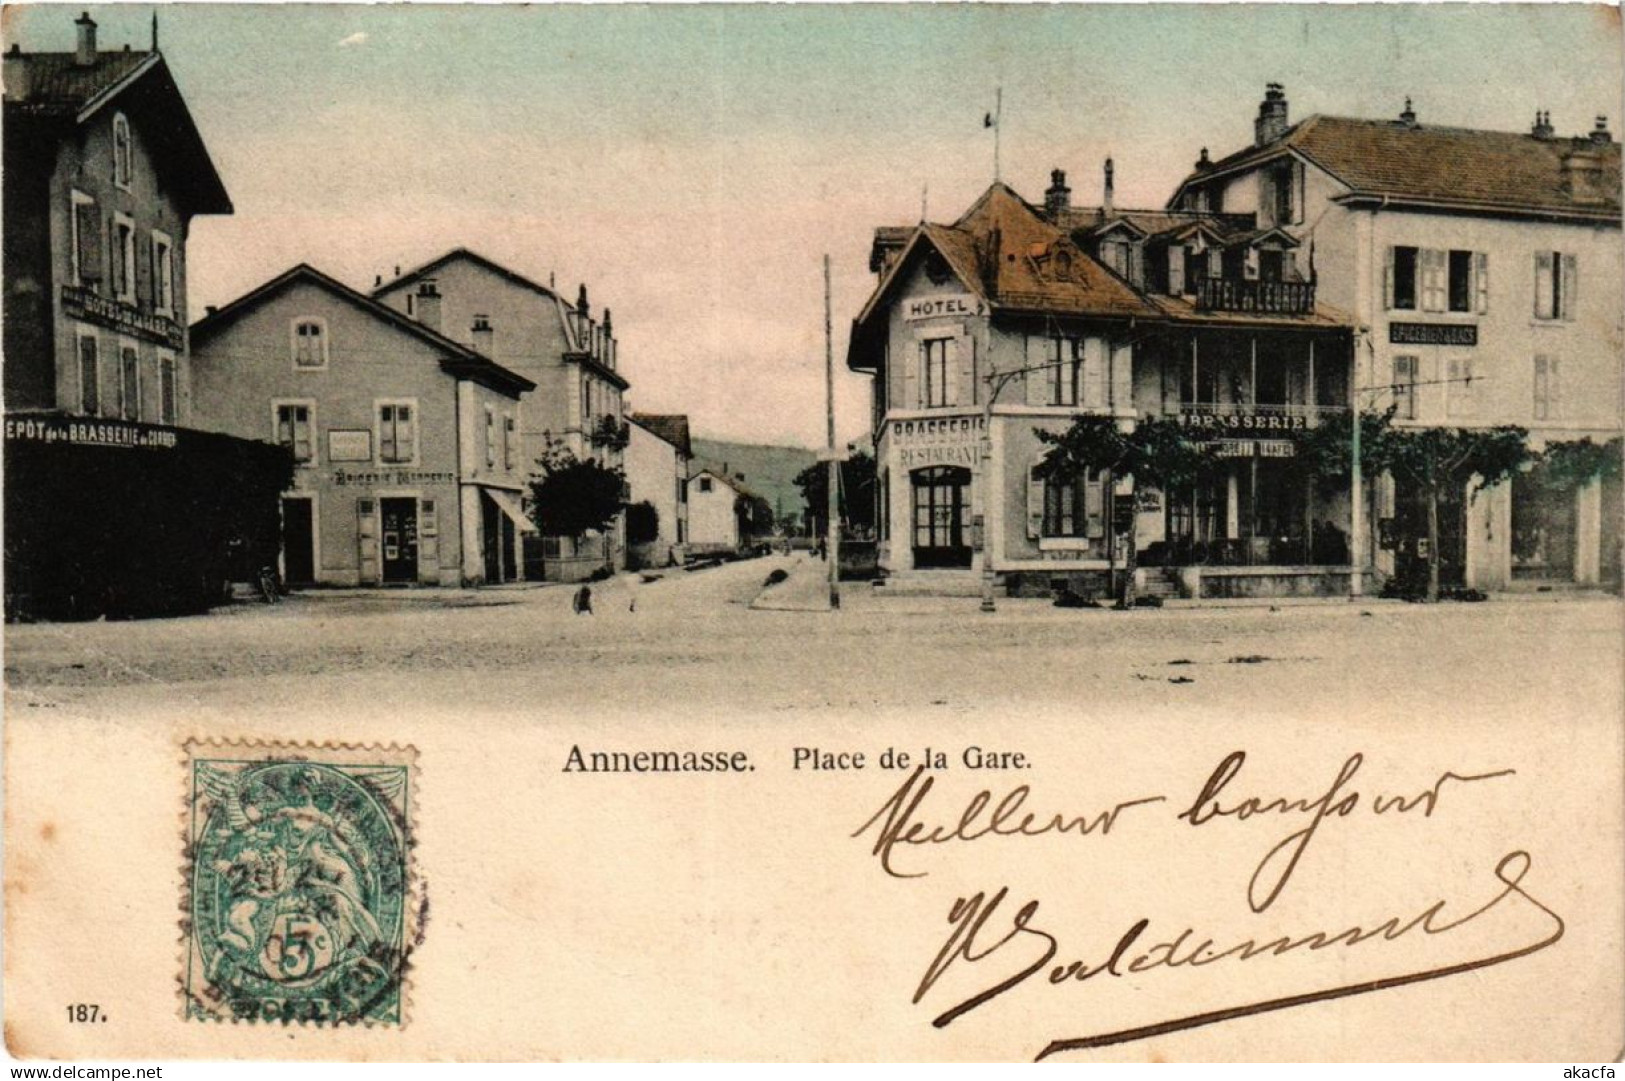 HOTEL DE LA GARE
DEPÔT de la BRASSERIE de CORBIER
EPICERIE MERCERIE
HOTEL
BRASSERIE
RESTAURANT
HOTEL DE L'EUROPE
BRASSERIE
EPICERIE TABACS
Annemasse. Place de la Gare.
Meilleur bonjour
5c
07
187.
akacfa
www.delcampe.net